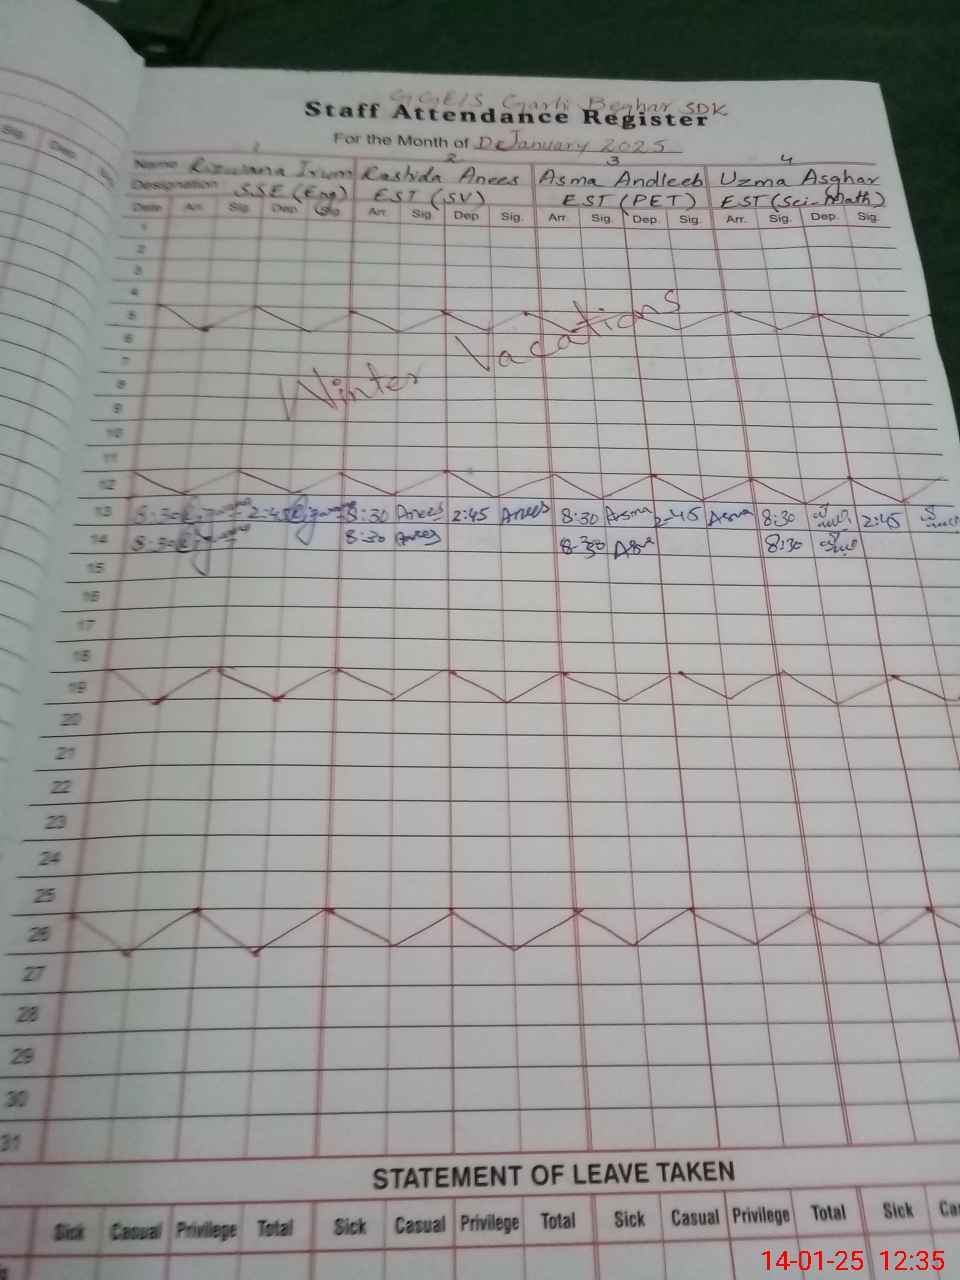 GGE/S Garhi Beghar SDK
Staff Attendance Register
For the Month of January 2025
1 2 3 4
Name Rizwana Irum Rashida Anees Asma Andleeb Uzma Asghar
Designation SSE (Eng) EST (SV) EST (PET) EST (Sci-Math)
Date Arr. Sig. Dep. Sig. Arr. Sig. Dep. Sig. Arr. Sig. Dep. Sig. Arr. Sig. Dep. Sig.
1
2
3
4
5
6
Winter Vacations
7
8
9
10
11
12
13 8:30 2:45 8:30 Anees 2:45 Anees 8:30 Asma 2-45 Asma 8:30 2:45
14 8:30 8:30 Anees 8-30 8:30
15
16
17
18
19
20
21
22
23
24
25
26
27
28
29
30
31
STATEMENT OF LEAVE TAKEN
Sick Casual Privilege Total Sick Casual Privilege Total Sick Casual Privilege Total Sick Ca
14-01-25 12:35